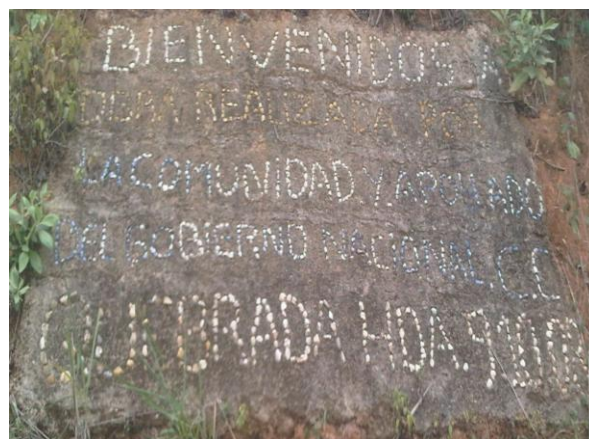 BIENVENIDOS A
OBRA REALIZADA POR
LA COMUNIDAD Y APOYADO
DEL GOBIERNO NACIONAL C.C
QUEBRADA HDA